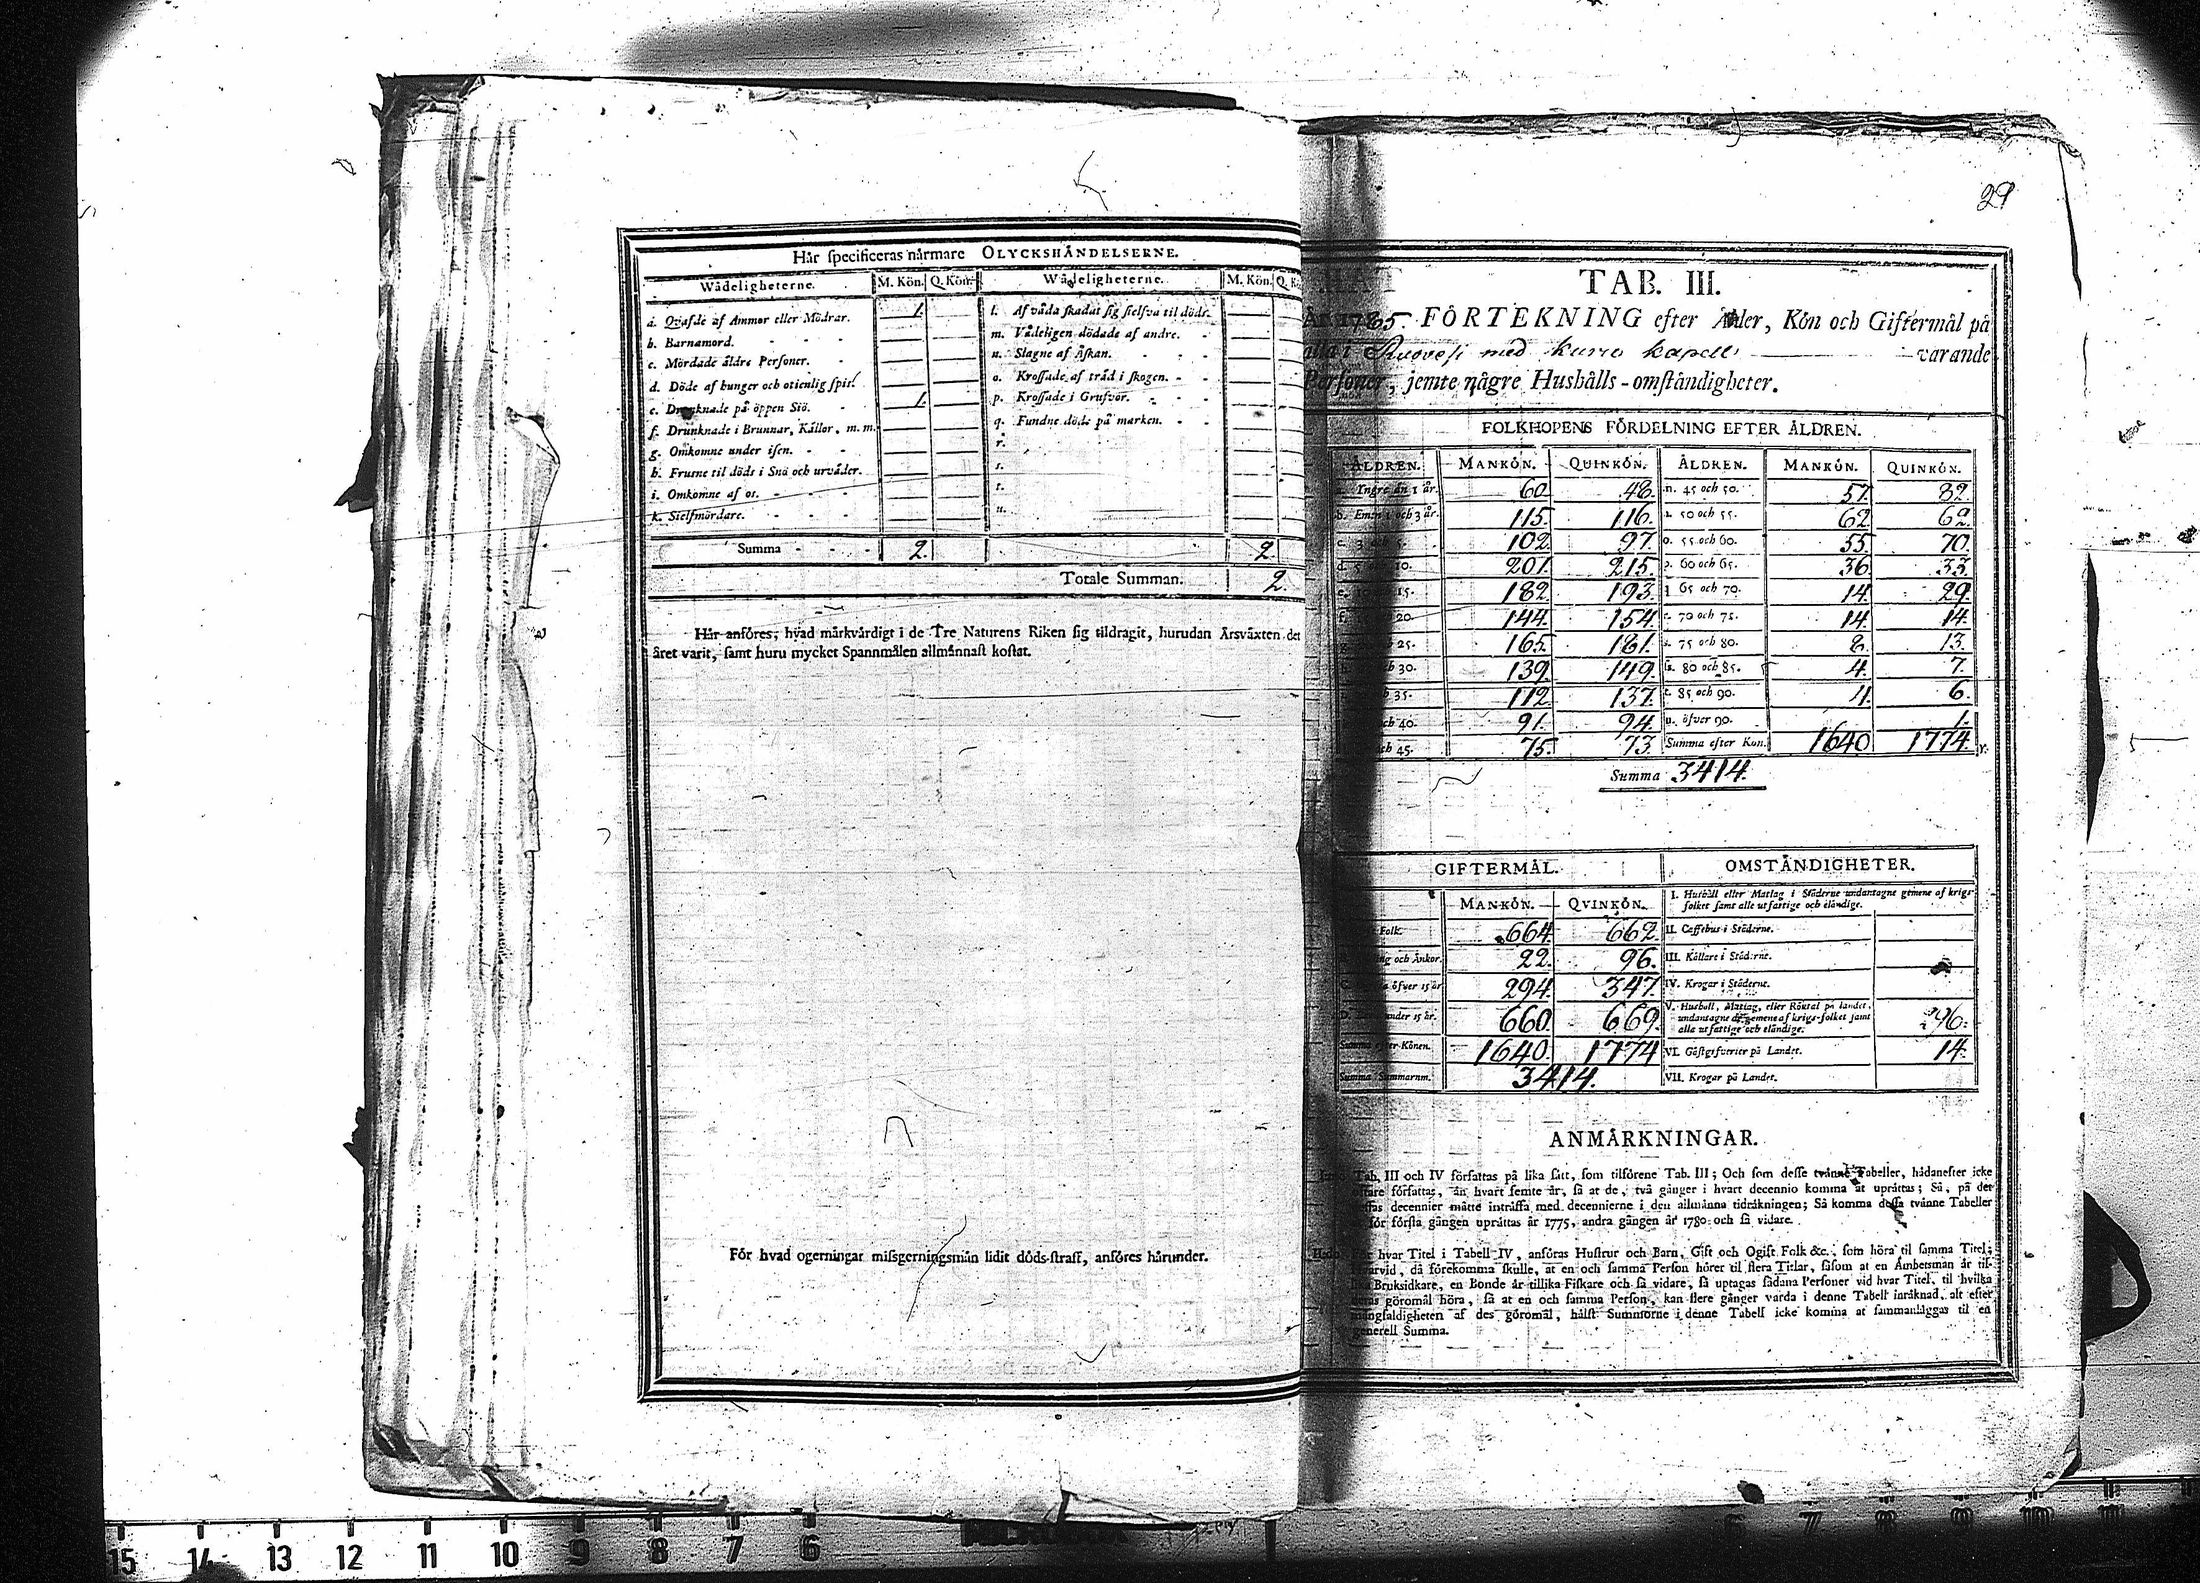 Här specificeras närmare OLYCKSHÄNDELSERNE.
Wådeligheterne. M. Kön. Q. Kön. Wådeligheterne. M. Kön. Q.
a. Qvafde af Ammor eller Mödrar. 1. l. Af våda skadat sig sielfva til döds.
b. Barnamord. m. Vådeligen dödade af andre.
c. Mördade äldre Personer. n. Slagne af Åskan.
d. Döde af hunger och otienlig spis. o. Krossade af träd i skogen.
e. Drunknade på öppen Siö. 1. p. Krossade i Grufvor.
f. Drunknade i Brunnar, Källor, m. m. q. Fundne döde på marken.
g. Omkomne under isen. r.
h. Frusne til döds i Snö och urväder. s.
i. Omkomne af os. t.
k. Sielfmördare. u.
Summa 2. 2.
Totale Summan. 2.
Här anföres, hvad märkvärdigt i de Tre Naturens Riken sig tildragit, hurudan Årsväxten det
året varit, samt huru mycket Spannmålen allmännast kostat.
För hvad ogerningar missgerningsmän lidit döds-straff, anföres härunder.
29
TAB. III.
1785. FÖRTEKNING efter Ålder, Kön och Giftermål på
alla i Ruovesi med kuru kapell varande
Personer, jemte någre Hushålls-omständigheter.
FOLKHOPENS FÖRDELNING EFTER ÅLDREN.
ÅLDREN. MANKÖN. QUINKÖN. ÅLDREN. MANKÖN. QUINKÖN.
Yngre än 1 år. 60 48. n. 45 och 50. 57. 82.
b. Emellan 1 och 3 år. 115. 116. 50 och 55. 62. 62.
c. 3 102. 97. o. 55 och 60. 55. 70.
d. 5 10. 201. 215. p. 60 och 65. 36. 33.
15. 182. 193. 65 och 70. 14. 29.
20. 144. 154. 70 och 75. 14. 14.
25. 165. 181. 75 och 80. 8. 13.
30. 139. 149. 80 och 85. 4. 7.
35. 112. 137. t. 85 och 90. 4. 6.
40. 91. 94. u. öfver 90. 1.
och 45. 75. 73 Summa efter Kön. 1640 1774.
Summa 3414.
GIFTERMÅL. OMSTÄNDIGHETER.
MANKÖN. QVINKÖN. I. Hushåll eller Matlag i Städerne undantagne gemene af krigs-
folket samt alle utfattige och eländige.
Folk. 664. 662. II. Caffehus i Städerne.
och Änkor. 22. 96. III. Källare i Städerne.
öfver 15 år 294. 347. IV. Krogar i Städerne.
under 15 år. 660. 669. V. Hushåll, Matlag, eller Röktal på landet,
undantagne de gemene af krigs-folket samt
alle utfattige och eländige. 296.
Summa efter Könen. 1640. 1774 VI. Gästgifverier på Landet. 14.
Summa Summarum. 3414. VII. Krogar på Landet.
ANMÄRKNINGAR.
Tab. III och IV författas på lika sätt, som tilförene Tab. III; Och som desse tvänne Tabeller, hädanefter icke
författas, än hvart femte år, så at de, två gånger i hvart decennio komma at uprättas; Så, på det
decennier måtte inträffa med decennierne i den allmänna tidräkningen; Så komma dessa tvänne Tabeller
för första gången uprättas år 1775, andra gången år 1780 och så vidare.
hvar Titel i Tabell IV, anföras Hustrur och Barn, Gift och Ogift Folk &c., som höra til samma Titel;
härvid, då förekomma skulle, at en och samma Person hörer til flera Titlar, såsom at en Ämbetsman är til-
Bruksidkare, en Bonde är tillika Fiskare och så vidare, så uptagas sådana Personer vid hvar Titel, til hvilka
göromål höra, så at en och samma Person, kan flere gånger varda i denne Tabell inräknad, alt efter
mångfaldigheten af des göromål, hälst Summorne i denne Tabell icke komma at sammanläggas til en
generell Summa.
15 14 13 12 11 10 9 8 7 6 6 7 8 9 10 11